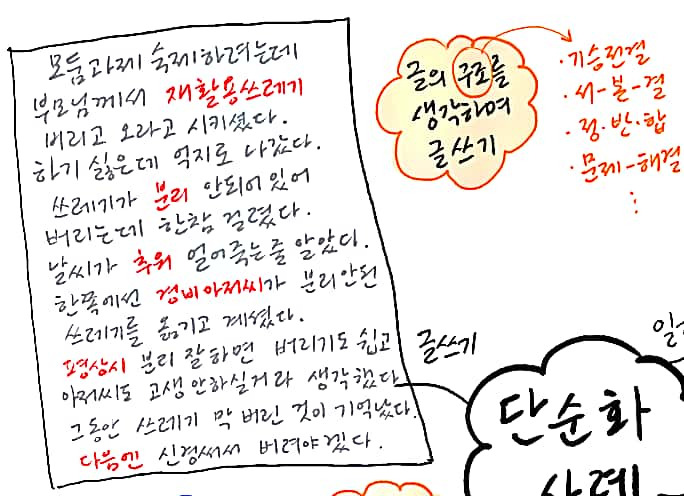 모둠과제 숙제하려는데
부모님께서 재활용쓰레기
버리고 오라고 시키셨다.
하기 싫은데 억지로 나갔다.
쓰레기가 분리 안되어 있어
버리는데 한참 걸렸다.
날씨가 추워 얼어죽는줄 알았다.
한쪽에선 경비아저씨가 분리안된
쓰레기를 옮기고 계셨다.
평상시 분리 잘하면 버리기도 쉽고
아저씨도 고생 안하실거라 생각했다
그동안 쓰레기 막 버린 것이 기억났다.
다음엔 신경써서 버려야겠다.
글의 구조를
생각하며
글쓰기
·기승전결
·서-본-결
·정·반·합
·문제-해결
⋮
글쓰기
단순화
사례